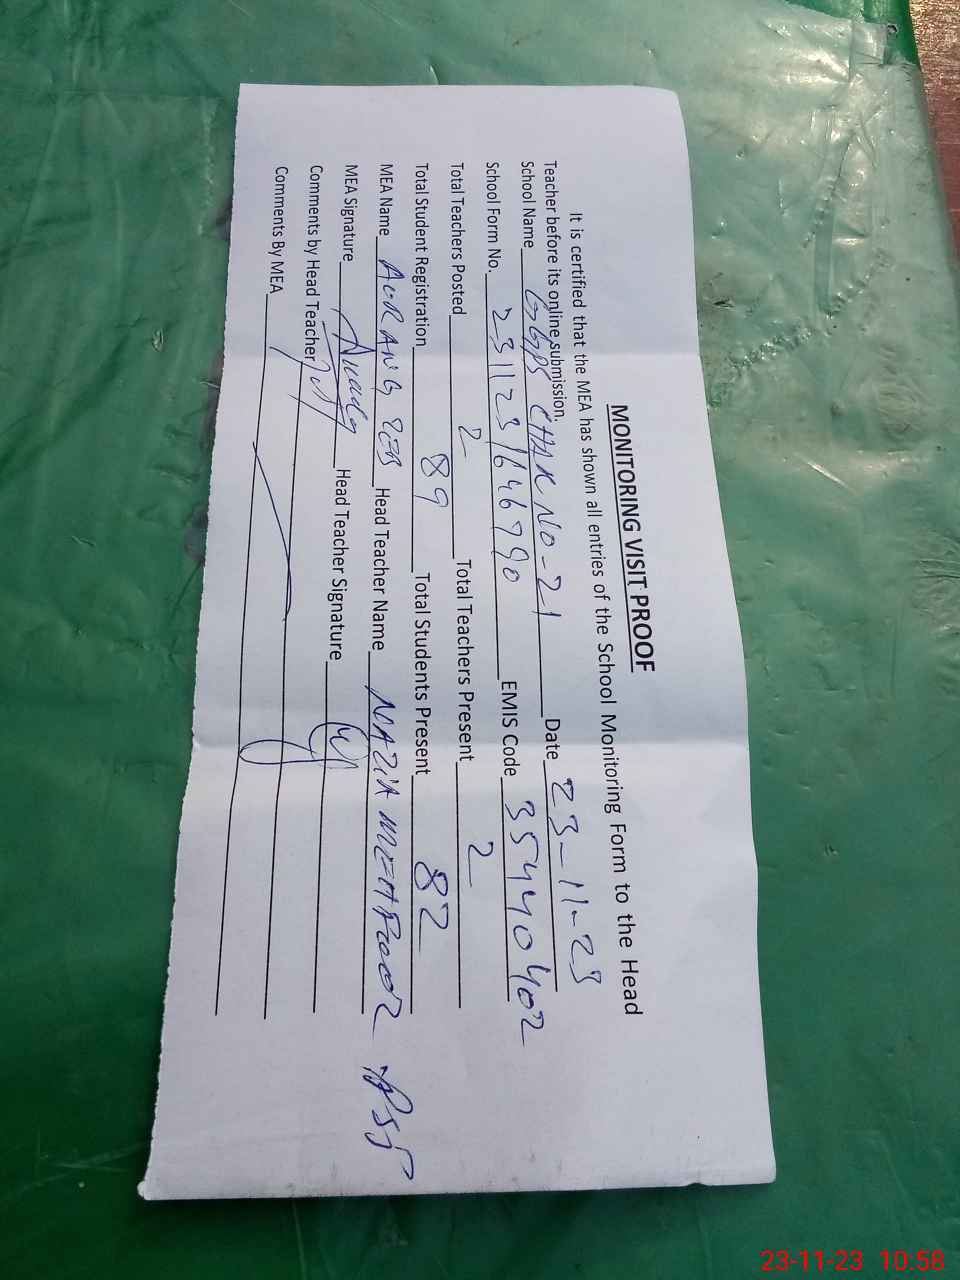 MONITORING VISIT PROOF
It is certified that the MEA has shown all entries of the School Monitoring Form to the Head
Teacher before its online submission.
School Name GGPS CHAK NO-21 Date 23-11-23
School Form No. 231123164679 0 EMIS Code 35440402
Total Teachers Posted 2 Total Teachers Present 2
Total Student Registration 89 Total Students Present 82
MEA Name AURANG ZEB Head Teacher Name NAZIA MEHBOOB PST
MEA Signature Head Teacher Signature
Comments by Head Teacher
Comments By MEA
23-11-23 10:58